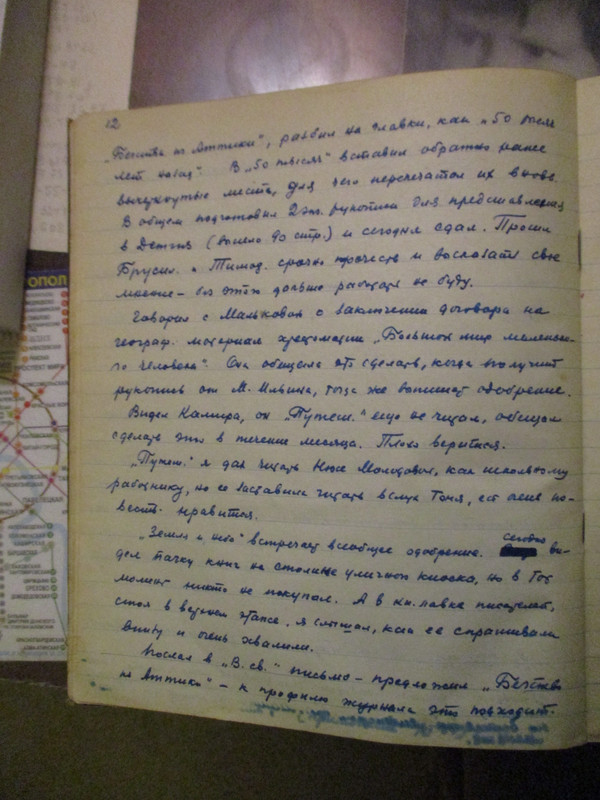 12
„Бегства из Аттики“, разбил на главки, как „50 тысяч
лет назад“. В „50 тысяч“ вставил обратно ранее
выкинутые места, для чего перепечатал их вновь.
В общем подготовил 2 экз. рукописи для представления
в Детгиз (вышло 90 стр.) и сегодня сдал. Просил
Брусил. и Тимод. срочно прочесть и высказать свое
мнение – без этого дальше работать не буду.
Говорил с Мальковой о заключении договора на
географ. материал хрестоматии „Большой мир маленько-
го человека“. Она обещала это сделать, когда получит
рукопись от М. Ильина, тогда же выпишет одобрение.
Видел Камира, он „Путеш.“ еще не читал, обещал
сделать это в течение месяца. Плохо верится.
„Путеш.“ я дал читать Нюсе Молодовой, как школьному
работнику, но ее заставила читать вслух Тоня, ей мене по-
весть нравится.
„Земля и небо“ встречает всеобщее одобрение. Сегодня ви-
дел пачку книг на столике уличного киоска, но в тот
момент никто не покупал. А в кн. лавке писателей,
стоя в верхнем этаже, я слышал, как ее спрашивали
внизу и очень хвалили.
Послал в „В. св.“ письмо – предложил „Бегство
из Аттики“ – к профилю журнала это подходит.